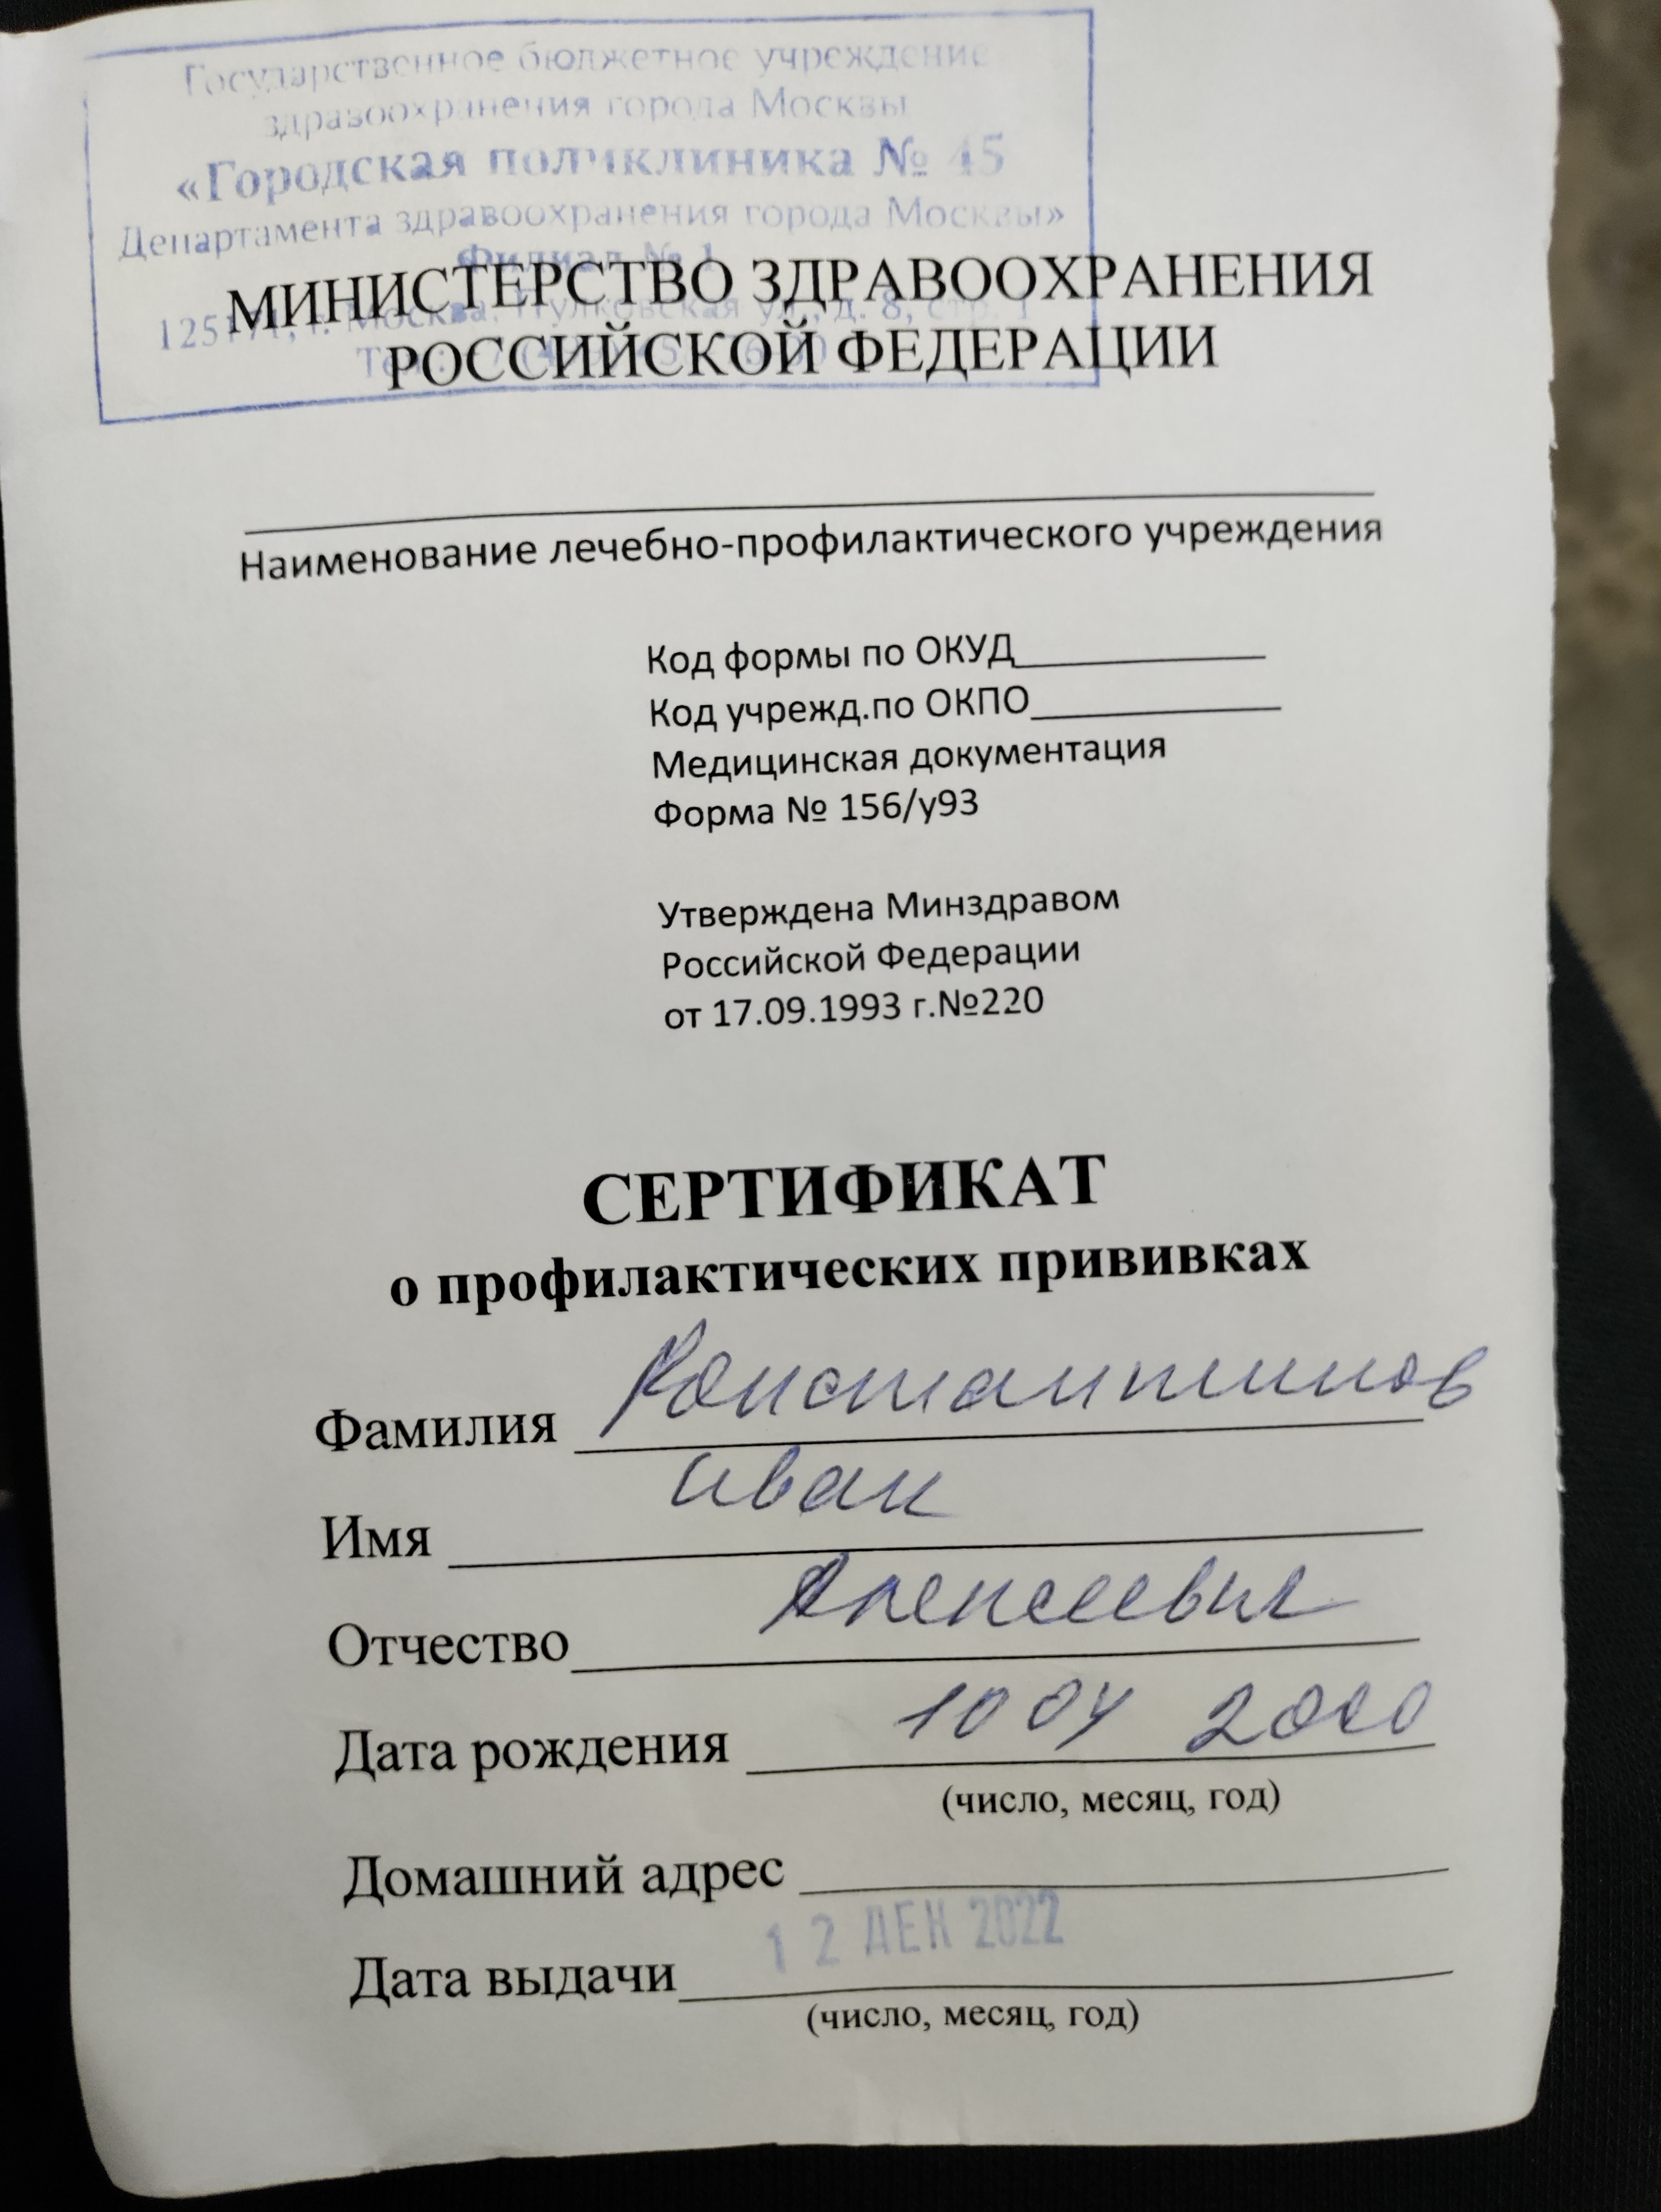 Государственное бюджетное учреждение
здравоохранения города Москвы
«Городская поликлиника № 45
Департамента здравоохранения города Москвы»
Филиал № 1
МИНИСТЕРСТВО ЗДРАВООХРАНЕНИЯ
г. Москва, Пулковская ул., д. 8, стр. 1
РОССИЙСКОЙ ФЕДЕРАЦИИ
Наименование лечебно-профилактического учреждения
Код формы по ОКУД
Код учрежд.по ОКПО
Медицинская документация
Форма № 156/у93
Утверждена Минздравом
Российской Федерации
от 17.09.1993 г.№220
СЕРТИФИКАТ
о профилактических прививках
Фамилия Константинов
Имя Иван
Отчество Алексеевич
Дата рождения 10 04 2000
(число, месяц, год)
Домашний адрес
Дата выдачи 12 ДЕК 2022
(число, месяц, год)